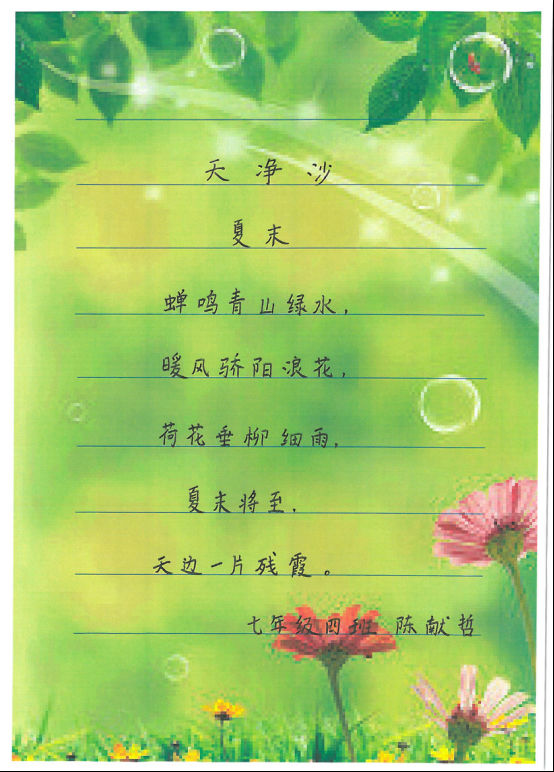 天净沙
夏末
蝉鸣青山绿水，
暖风骄阳浪花，
荷花垂柳细雨，
夏末将至，
天边一片残霞。
七年级四班 陈献哲